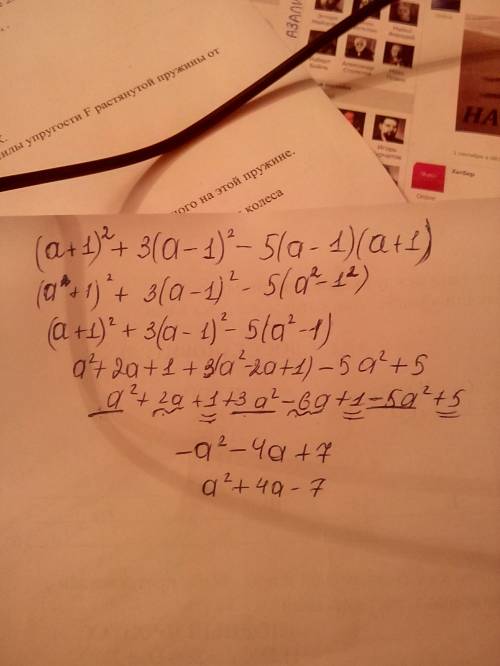 АЗАЛИ
НА
Online
Хилбер
илы упругости F растянутой пружины от
ного на этой пружине.
колеса
(a+1)² + 3(a-1)² - 5(a-1)(a+1)
(a²+1)² + 3(a-1)² - 5(a²-1²)
(a+1)² + 3(a-1)² - 5(a²-1)
a²+2a+1 + 3(a²-2a+1) - 5a²+5
a²+2a+1+3a²-6a+1-5a²+5
-a²-4a+7
a²+4a-7